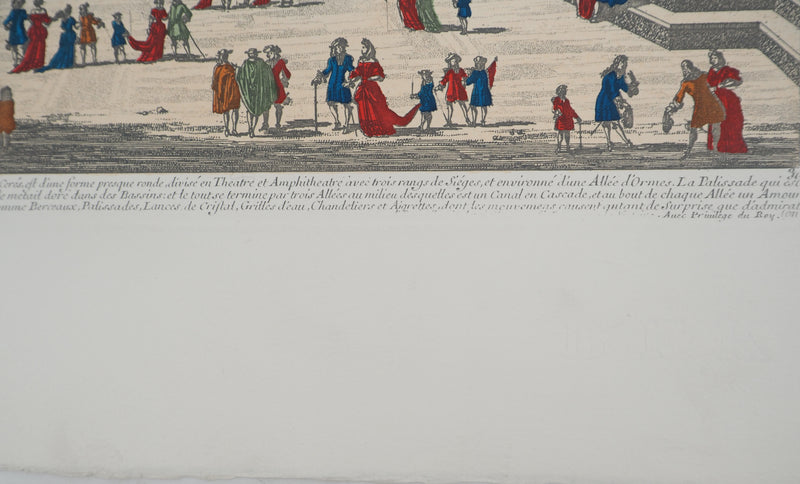 Ceres, est d'une forme presque ronde divisé en Theatre et Amphitheatre avec trois rangs de Sièges, et environné d'une Allée d'Ormes. La Palissade qui est
métail doré dans des Bassins: et le tout se termine par trois Allées au milieu desquelles est un Canal en Cascade, et au bout de chaque Allée un Amour
omme Berceaux, Palissades, Lances de Cristal, Grilles d'eau, Chandeliers et Aigrettes, dont les mouvemens causent autant de Surprise que d'admirat
Avec Privilege du Roy.